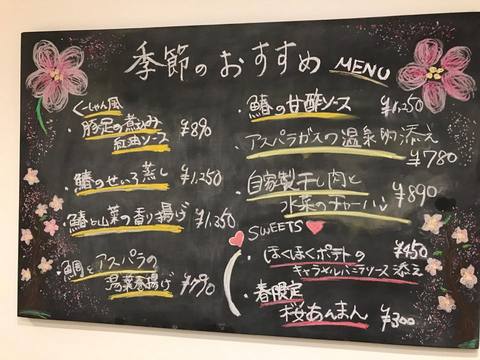 季節のおすすめ MENU
ぐーしゃん風
・豚足の煮込み
紅油ソース ¥890
・鰆のせいろ蒸し ¥1,250
・鰆と山菜の香り揚げ ¥1,350
・鯛とアスパラの
湯葉春揚げ ¥790
・鰆の甘酢ソース ¥1,250
・アスパラガスの温泉卵添え
¥780
・自家製干し肉と
水菜のチャーハン ¥890
SWEETS
・ほくほくポテトの ¥450
キャラメルバニラソース添え
・春限定
桜あんまん ¥300